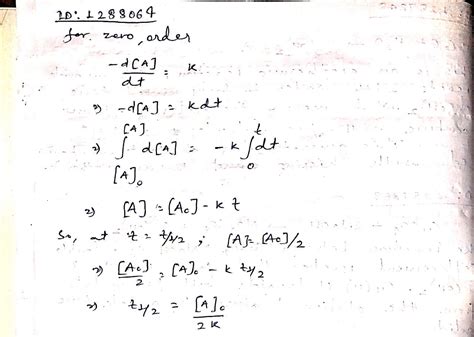 ID: 1288064
for zero, order
-d[A]/dt = k
⇒ -d[A] = k dt
⇒ ∫_{[A]₀}^{[A]} d[A] = -k ∫_0^t dt
⇒ [A] = [A₀] - k t
So, at t = t1/2 ; [A] = [A₀]/2
⇒ [A₀]/2 = [A]₀ - k t1/2
⇒ t1/2 = [A]₀/2k